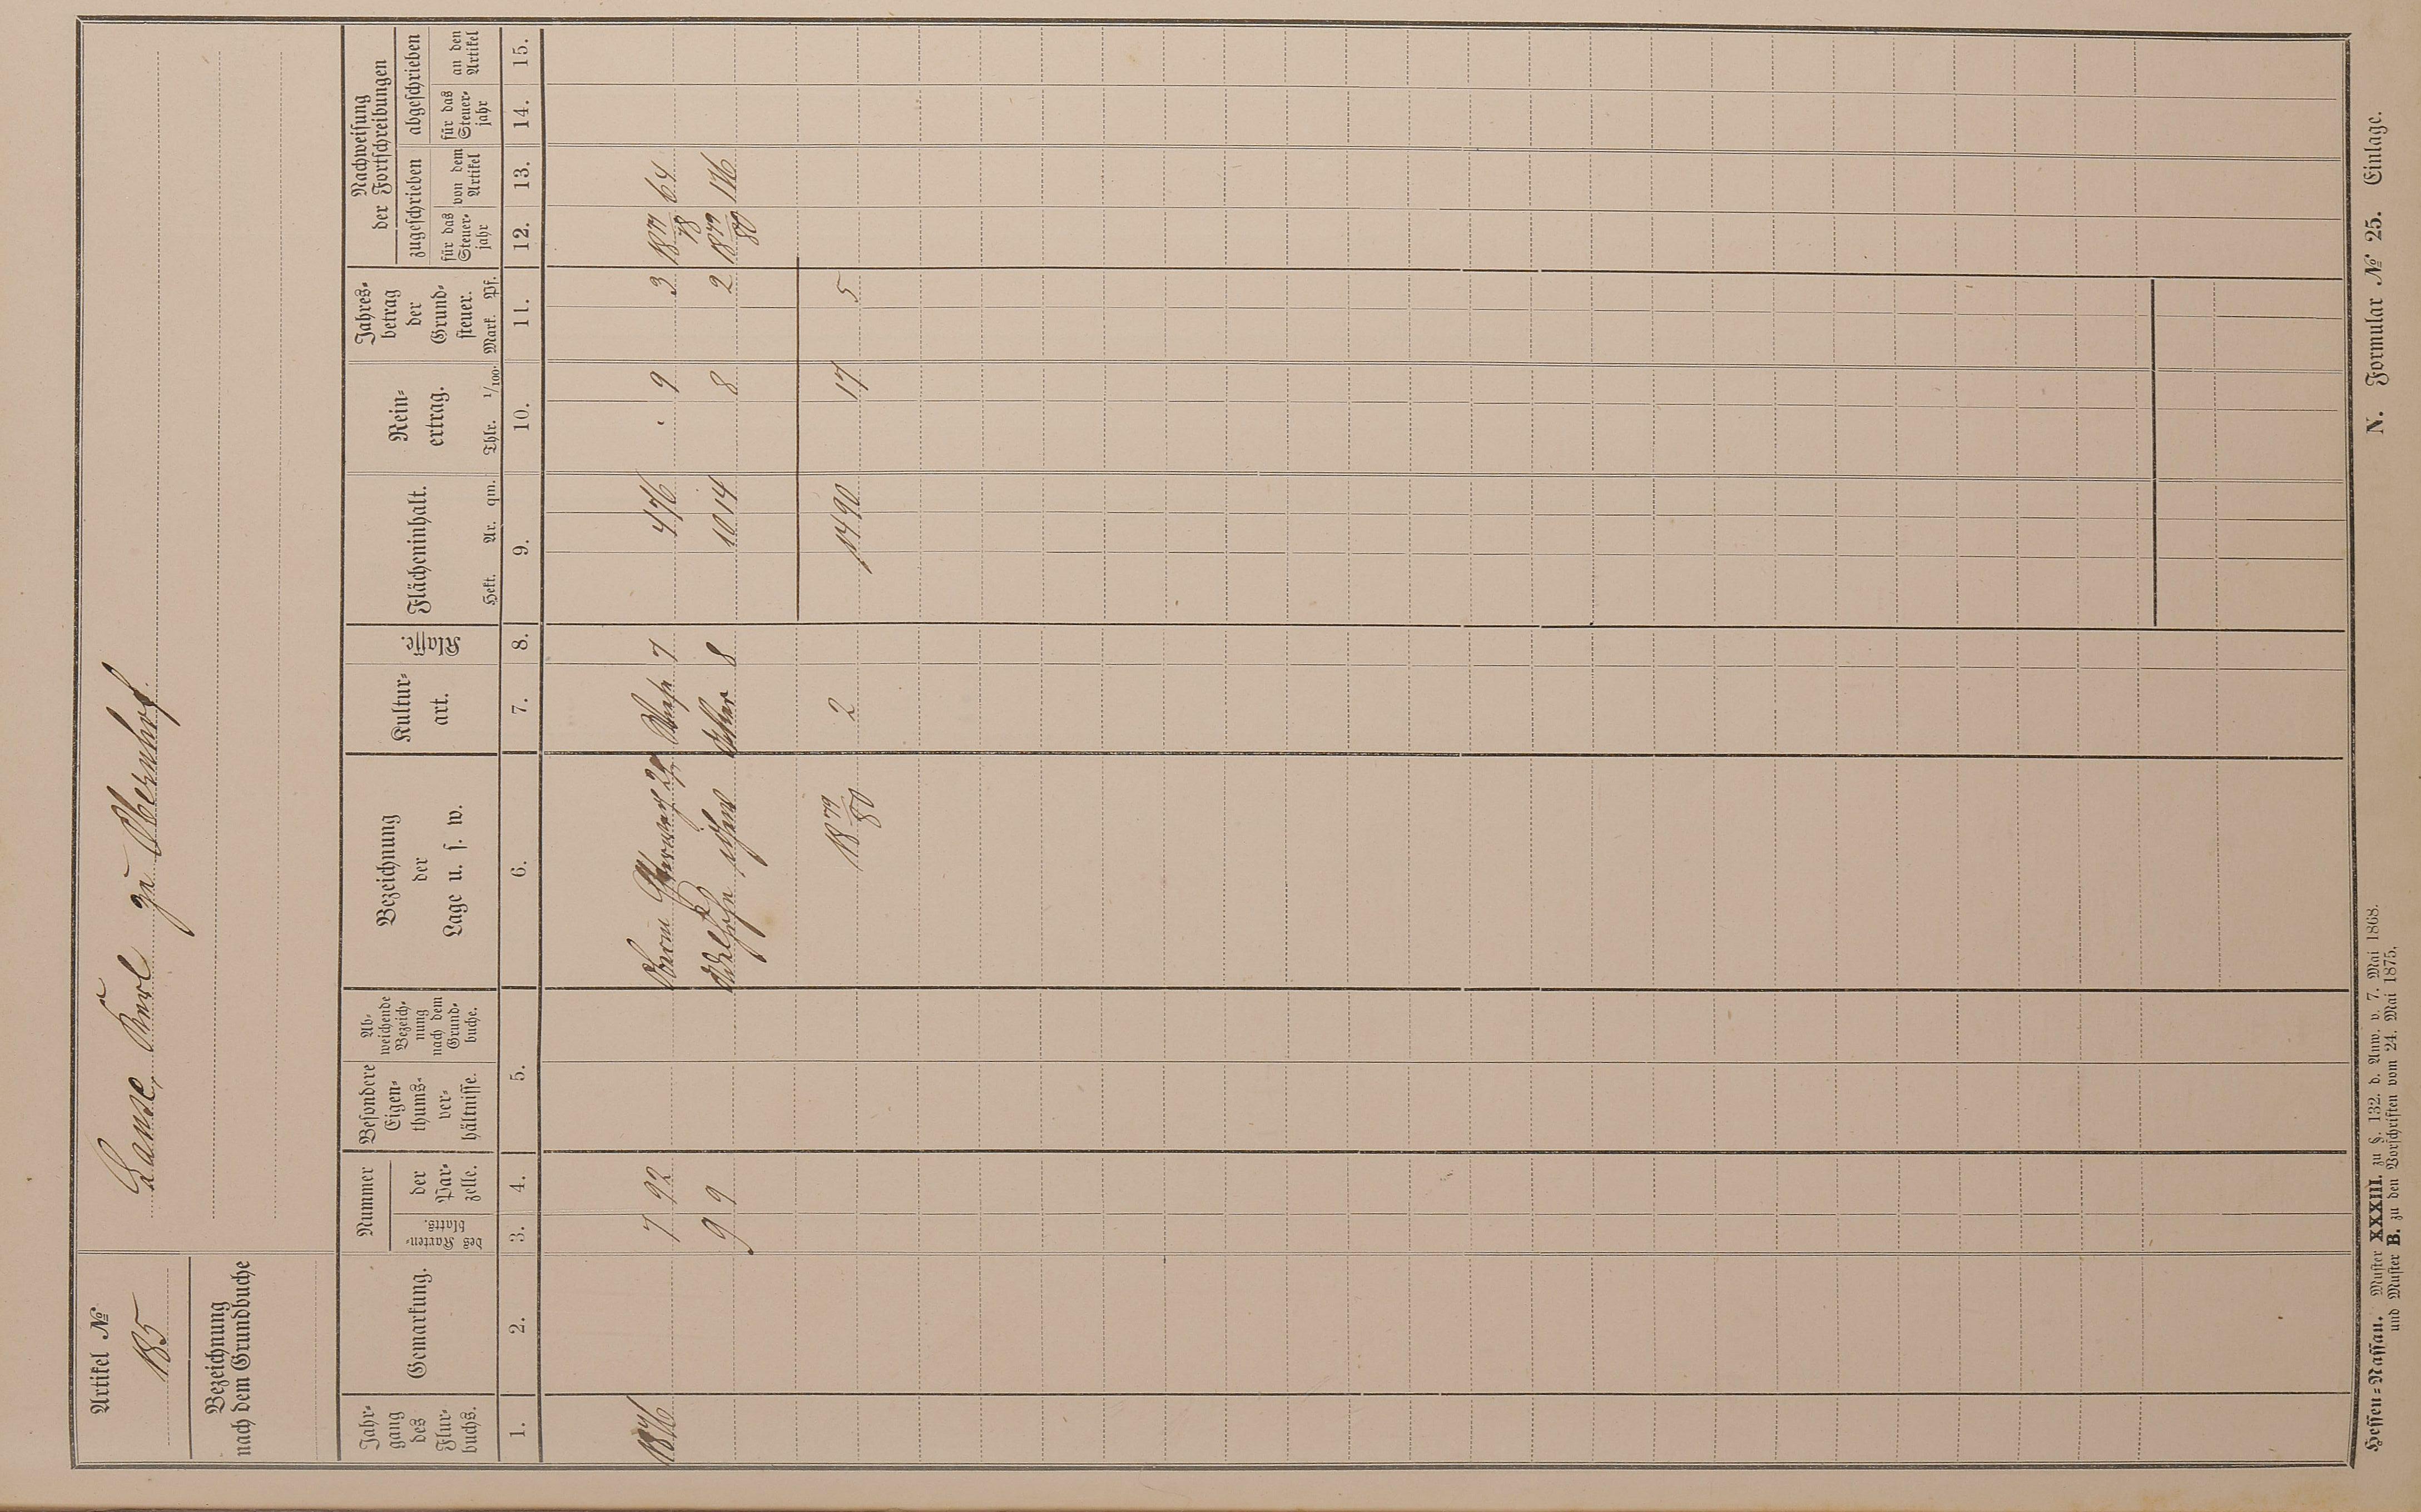 Artikel №
185
Bezeichnung
nach dem Grundbuche
Karl zu Obernhof
Jahr-
gang
des
Flur-
buchs.
Gemarkung.
Nummer
des Karten-
blatts.
der
Par-
zelle.
Besondere
Eigen-
thums-
ver-
hältnisse.
Ab-
weichende
Bezeich-
nung
nach dem
Grund-
buche.
Bezeichnung
der
Lage u. s. w.
Kultur-
art.
Klasse.
Flächeninhalt.
Hekt. Ar. qm.
Rein-
ertrag.
Thlr. 1/100.
Jahres-
betrag
der
Grund-
steuer.
Mark. Pf.
Nachweisung
der Fortschreibungen
zugeschrieben
abgeschrieben
für das
Steuer-
jahr
von dem
Artikel
für das
Steuer-
jahr
an den
Artikel
1. 2. 3. 4. 5. 6. 7. 8. 9. 10. 11. 12. 13. 14. 15.
1876 7 92 7 4 76 9 3 1877/78 64
9 9 Acker 8 10 14 8 2 1879/80 176
1879/80 2 14 90 17 5
Hessen-Nassau. Muster XXXIII. zu §. 132. d. Anw. v. 7. Mai 1868.
und Muster B. zu den Vorschriften vom 24. Mai 1875.
N. Formular № 25. Einlage.